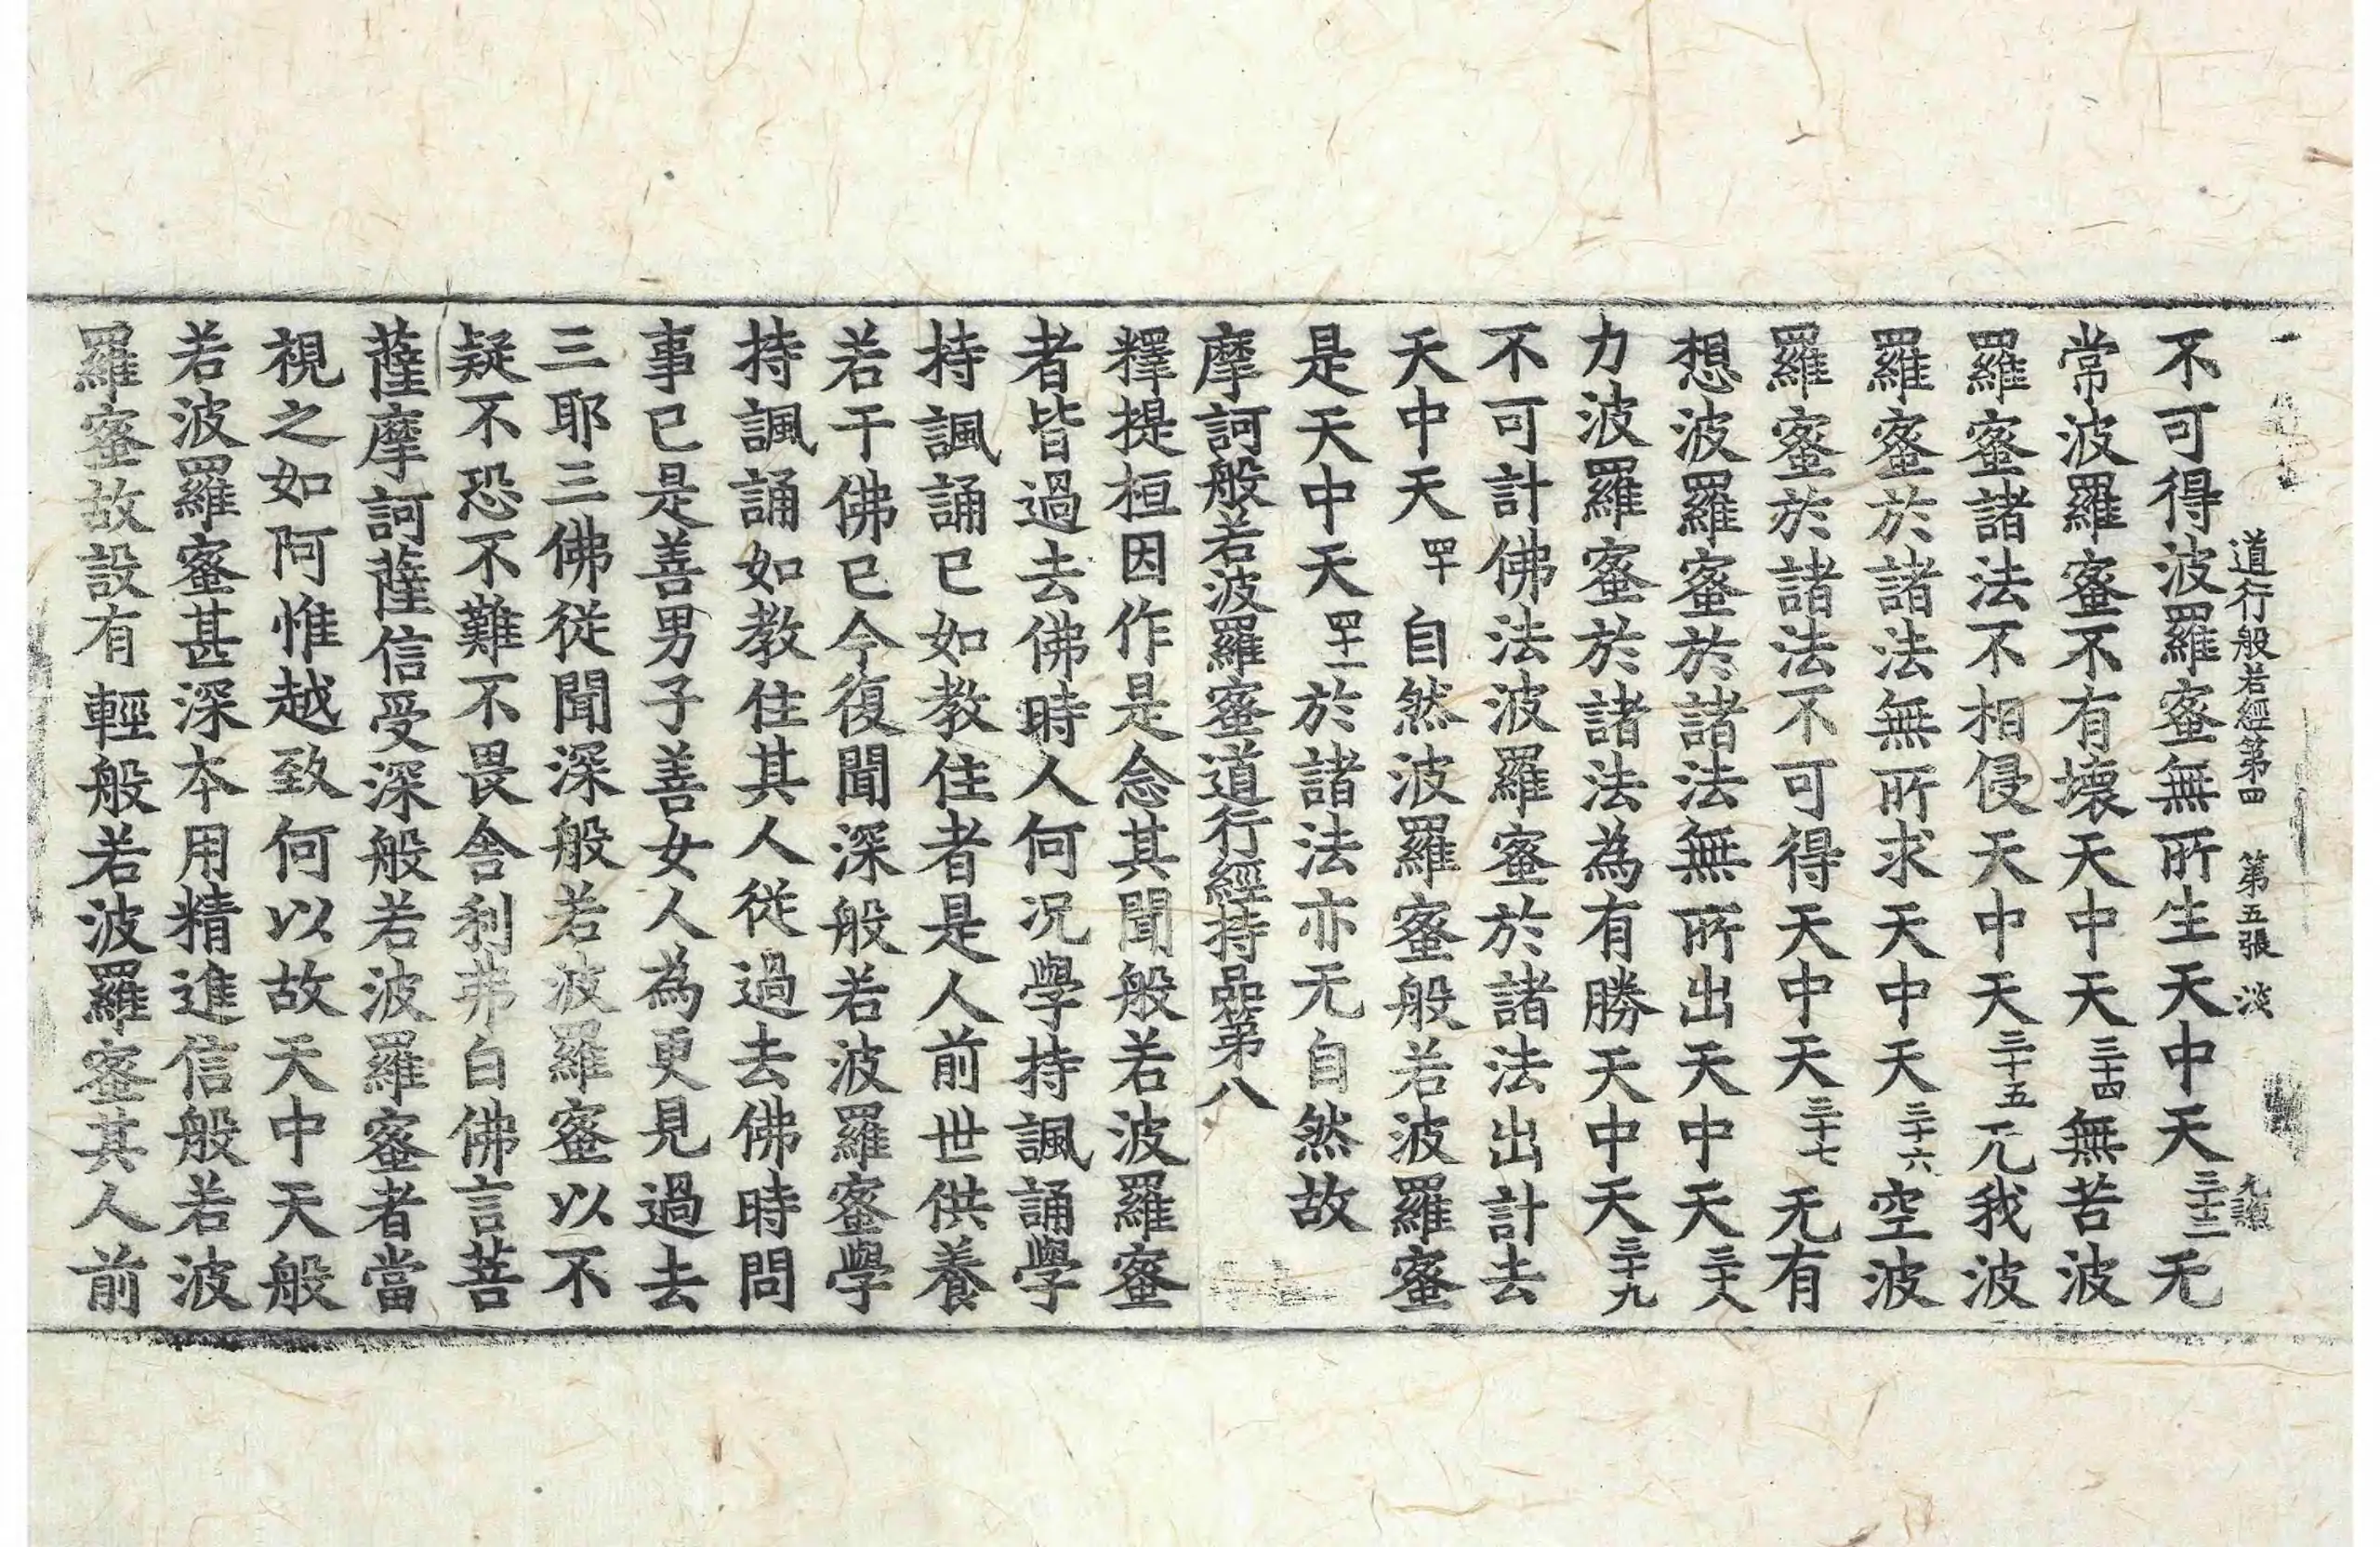 道行般若經第四 第五張 淡
不可得波羅蜜無所生天中天三十三无
常波羅蜜不有壞天中天三十四無苦波
羅蜜諸法不相侵天中天三十五无我波
羅蜜於諸法無所求天中天三十六空波
羅蜜於諸法不可得天中天三十七无有
想波羅蜜於諸法無所出天中天三十八
力波羅蜜於諸法為有勝天中天三十九
不可計佛法波羅蜜於諸法出計去
天中天四十自然波羅蜜般若波羅蜜
是天中天四十一於諸法亦无自然故
摩訶般若波羅蜜道行經持品第八
釋提桓因作是念其聞般若波羅蜜
者皆過去佛時人何况學持諷誦學
持諷誦已如教住者是人前世供養
若干佛已今復聞深般若波羅蜜學
持諷誦如教住其人從過去佛時問
事已是善男子善女人為更見過去
三耶三佛從聞深般若波羅蜜以不
疑不恐不難不畏舍利弗白佛言菩
薩摩訶薩信受深般若波羅蜜者當
視之如阿惟越致何以故天中天般
若波羅蜜甚深本用精進信般若波
羅蜜故設有輕般若波羅蜜其人前